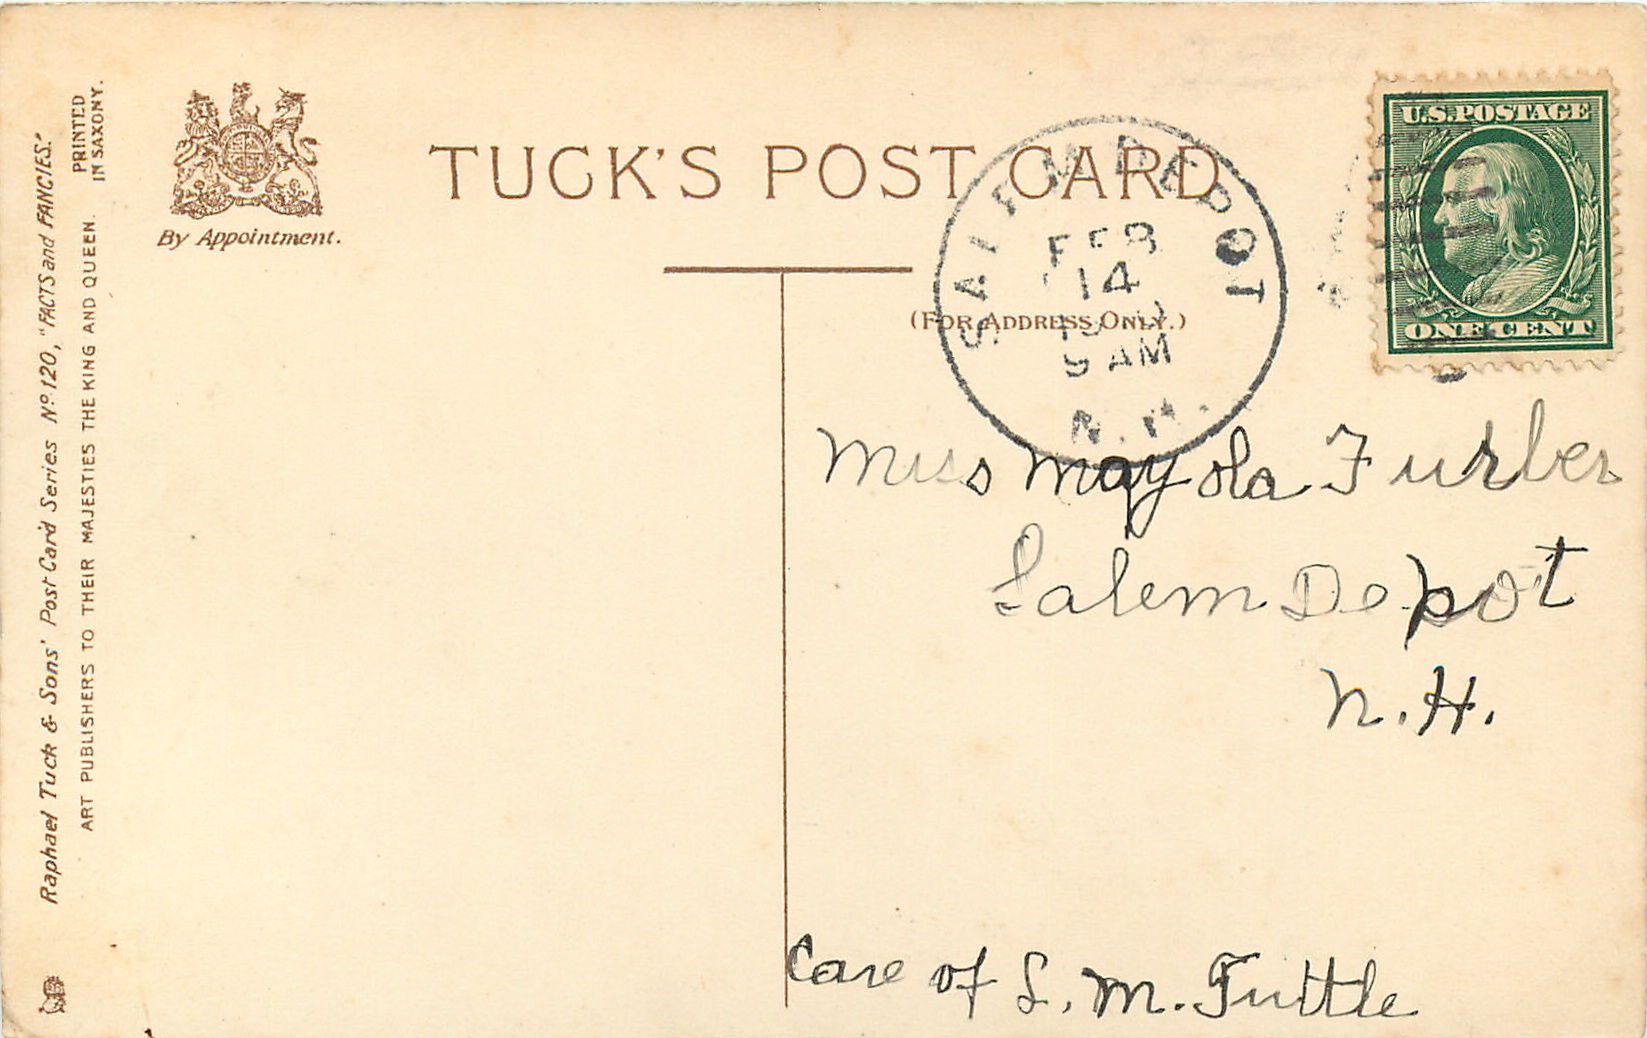 Raphael Tuck & Sons' Post Card Series No. 120, "FACTS and FANCIES."
ART PUBLISHERS TO THEIR MAJESTIES THE KING AND QUEEN.
PRINTED
IN SAXONY.
By Appointment.
TUCK'S POST CARD
(FOR ADDRESS ONLY.)
SALEM DEPOT
FEB
14
9 AM
N.H.
U.S. POSTAGE
ONE CENT
Miss Mayola Furber
Salem Depot
N.H.
Care of S. M. Tuttle